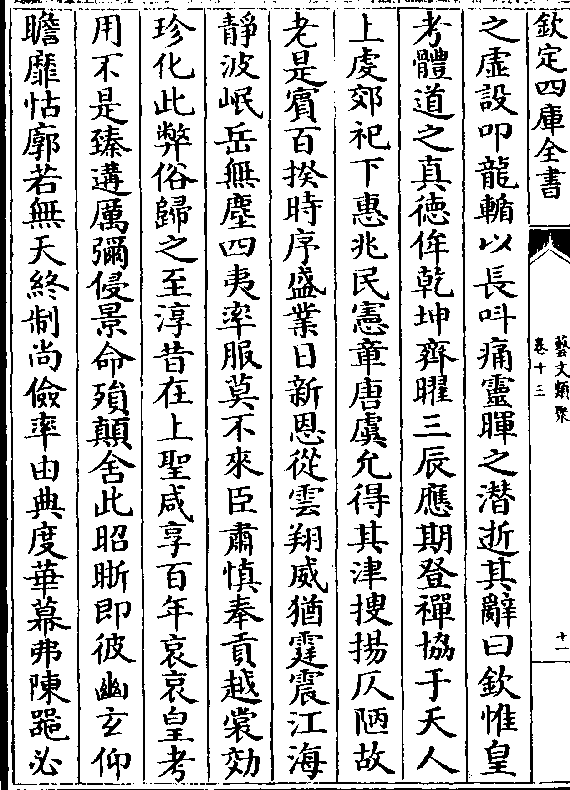 欽定四庫全書
藝文類聚
卷十三
十一
之虛設叩龍輴以長叫痛靈暉之潛逝其辭曰欽惟皇
考體道之真徳侔乾坤齊曜三辰應期登禪協于天人
上虔郊祀下惠兆民憲章唐虞允得其津搜揚仄陋故
老是賓百揆時序盛業日新恩從雲翔威猶霆震江海
静波岷岳無塵四夷率服莫不來臣肅慎奉貢越裳効
珍化此弊俗歸之至淳昔在上聖咸享百年哀哀皇考
用不是臻遘厲彌侵景命殞顛舍此昭晣即彼幽玄仰
瞻靡怙廓若無天終制尚儉率由典度華幕弗陳器必